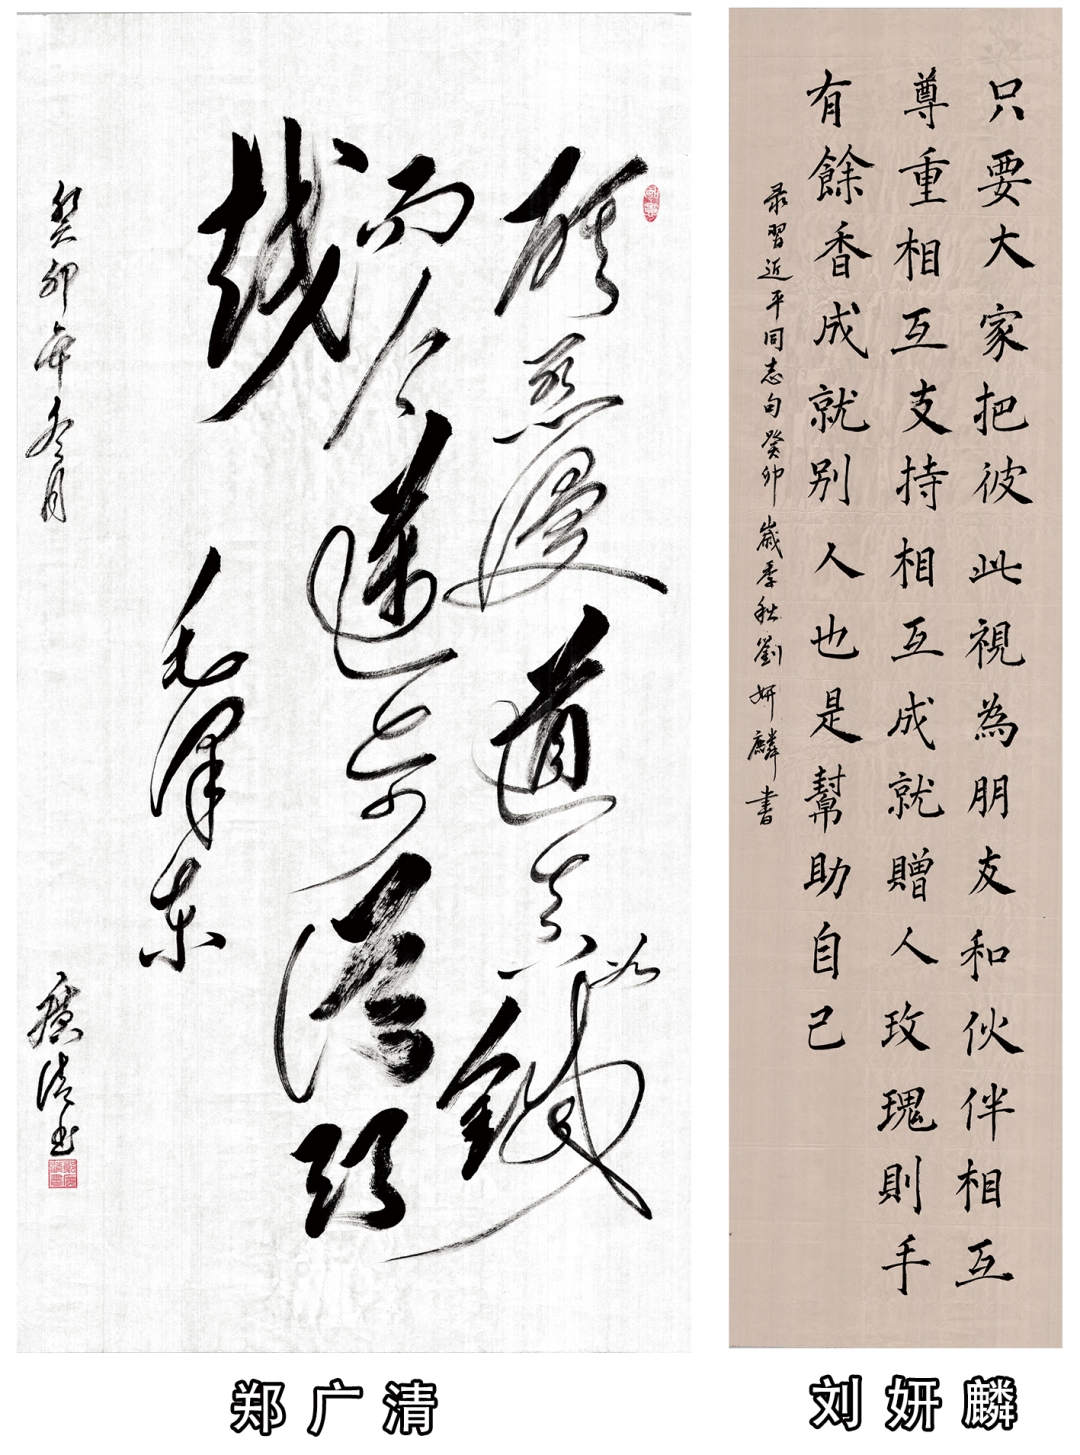 雄關漫道真如鐵
而今邁步從頭
越
毛澤东
癸卯年冬月
廣清书
只要大家把彼此視為朋友和伙伴相互
尊重相互支持相互成就贈人玫瑰則手
有餘香成就别人也是幫助自己
录習近平同志句癸卯歲季秋劉妍麟書
郑广清
刘妍麟